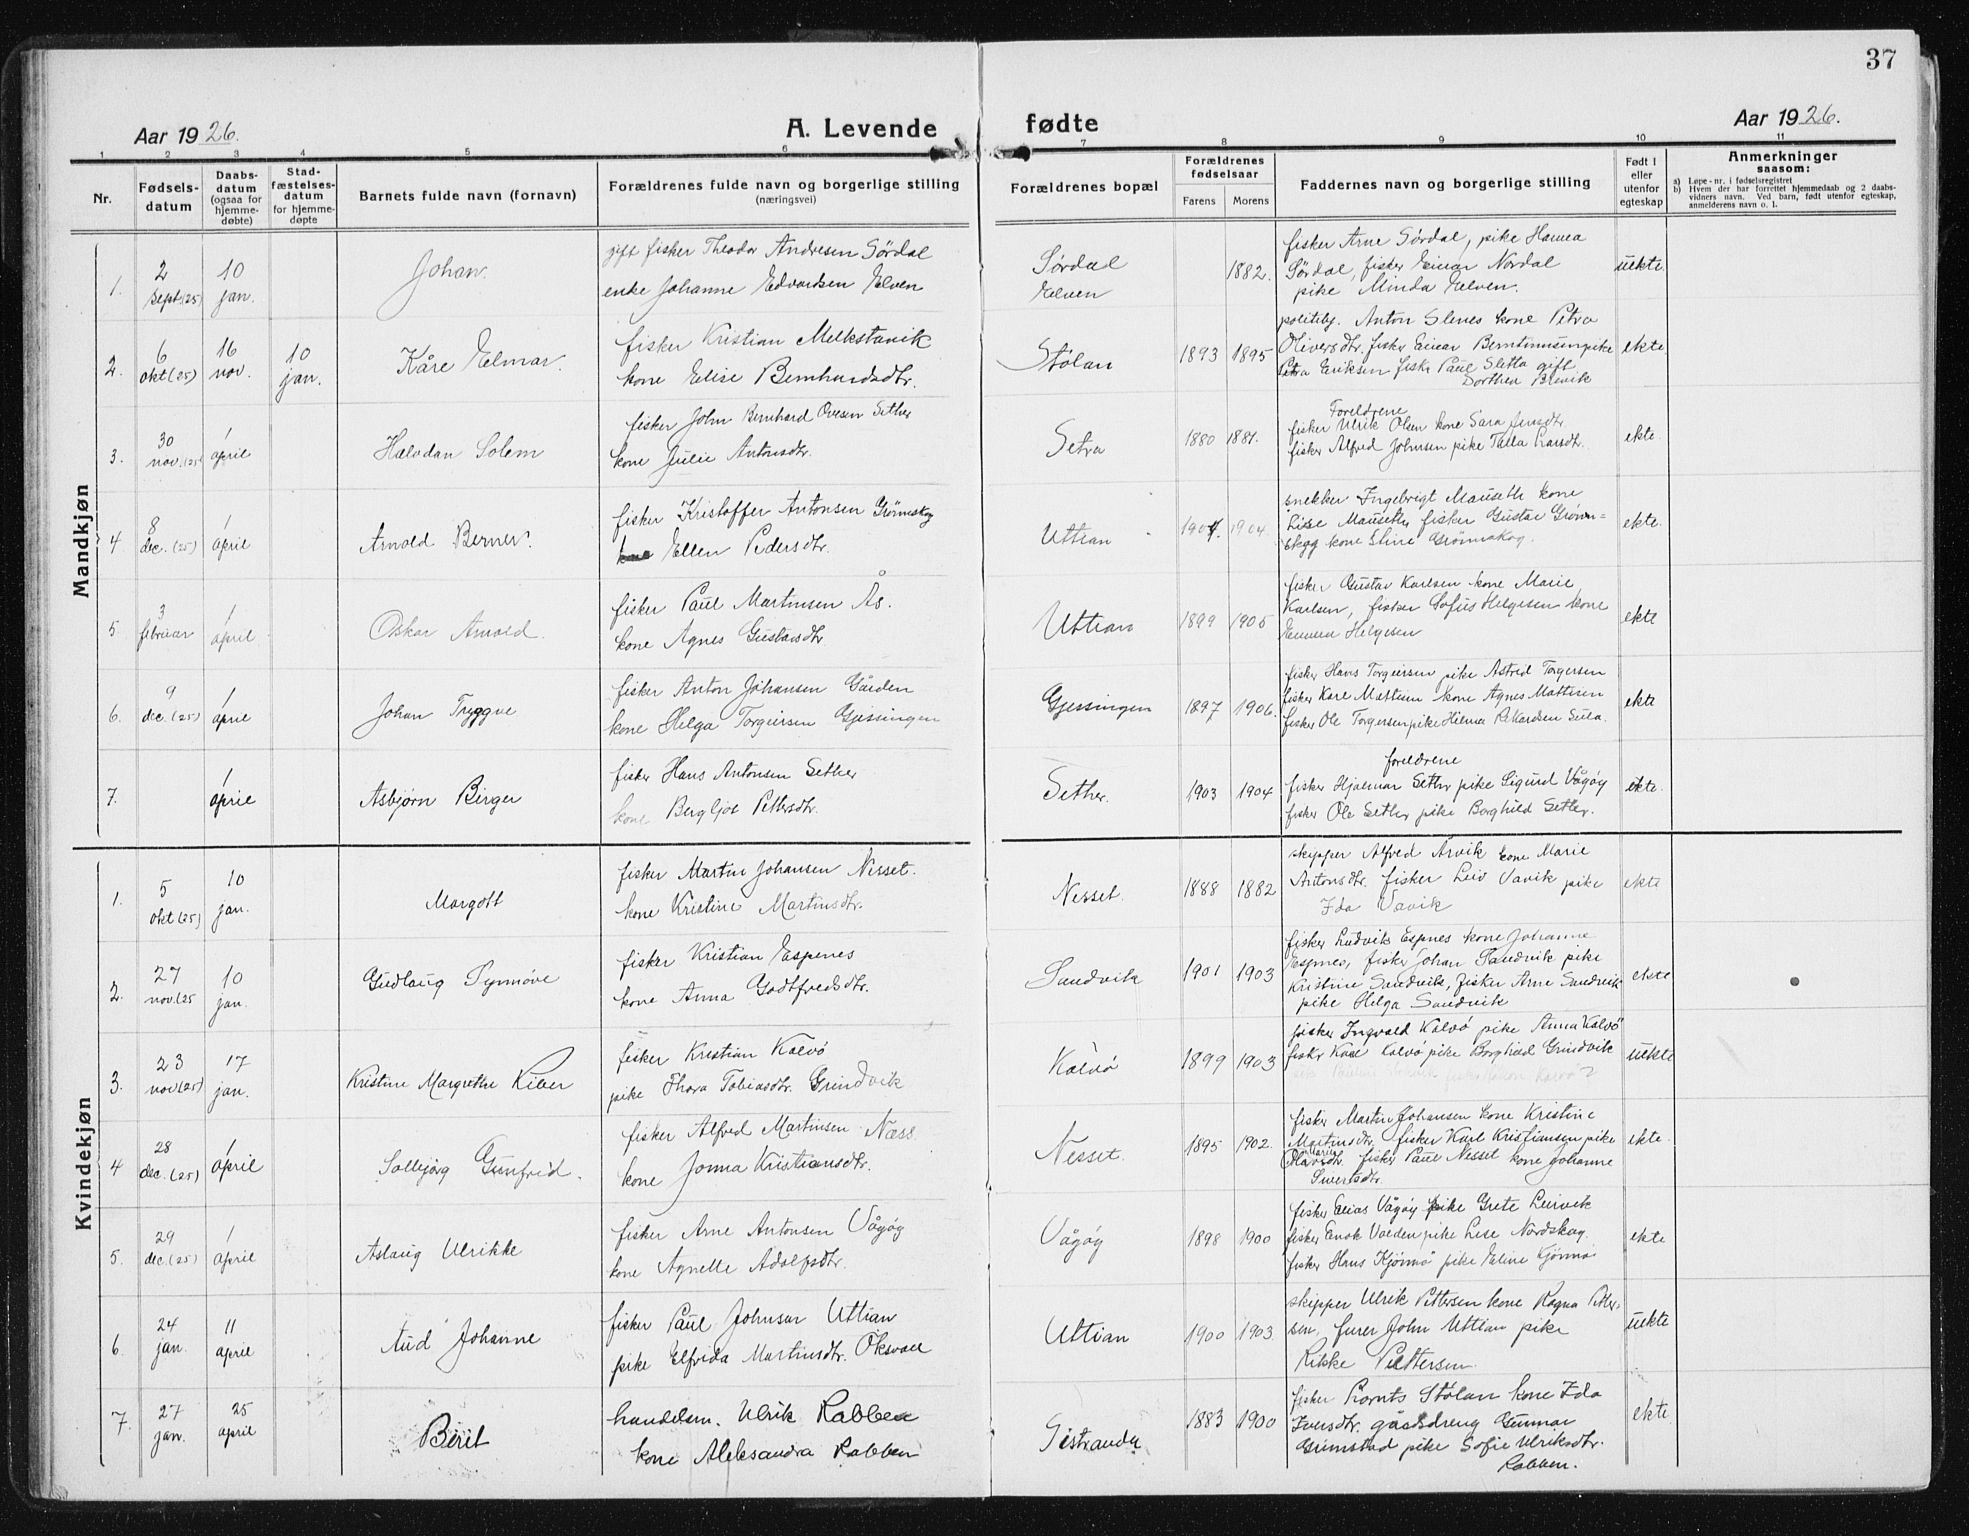 37
Aar 1926. A. Levende fødte Aar 1926.
1 2 3 4 5 6 7 8 9 10 11
Nr.
Fødsels-
datum
Daabs-
datum
(ogsaa for
hjemme-
døbte)
Stad-
fæstelses-
datum
for hjemme-
døpte
Barnets fulde navn (fornavn)
Forældrenes fulde navn og borgerlige stilling
(næringsvei)
Forældrenes bopæl
Forældrenes
fødselsaar
Farens Morens
Faddernes navn og borgerlige stilling
Født i
eller
utenfor
egteskap
Anmerkninger
saasom:
a) Løpe-nr. i fødselsregistret
b) Hvem der har forrettet hjemmedaab og 2 daabs-
vidners navn. Ved barn, født utenfor egteskap,
anmelderens navn o. l.
Mandkjøn
1. 2 sept. (25) 10 jan. Johan.
gift fisker Theodor Andresen Sördal
enke Johanne Edvardsen Elven
Sördal
Elven
1882.
fisker Arne Sördal, pike Hanna
Sördal, fisker Einar Nordal
pike Minda Elven.
uekte.
2. 6 okt (25) 16 nov. 10 jan. Kåre Elmar.
fisker Kristian Melkstavik
kone Elise Bernhardsdtr.
Stölan
1893 1895
politibj. Anton Slenes kone Petra
Oliversdtr. fisker Einar Berntinusen pike
Petra Eriksen fisk. Paul Sletta gift
Dorthea Brevik
ekte
3. 30 nov. (25) 1 april Halvdan Solem
fisker John Bernhard Ovesen Sether
kone Julie Antonsdtr.
Setra
1880 1881.
Foreldrene
fisker Ulrik Olsen kone Sara Jensdtr.
fisker Alfred Johnsen pike Talla Larsdtr.
ekte.
4 8 dec. (25) 1 april Arnold Berner.
fisker Kristoffer Antonsen Grönskog
kone Ellen Pedersdtr.
Uttian
1904. 1904
snekker Ingebrigt Mauseth kone
Lise Mauseth, fisker Gustav Grön=
skog kone Stine Grönskog.
ekte.
5. 3 februar 1 april Oskar Arnold.
fisker Paul Martinsen Ås.
kone Agnes Gustavsdtr.
Uttian
1899 1905
fisker Gustav Karlsen kone Marie
Karlsen, fisker Sofus Helgesen kone
Emma Helgesen
ekte
6. 9 dec. (25) 1 april Johan Tryggve
fisker Anton Johansen Gården
kone Helga Torgersen Gjessingen
Gjessingen
1897 1906.
fisker Hans Torgersen pike Astrid Torgersen
fisker Karl Martinsen kone Agnes Mattisen
fisker Ole Torgersen pike Hilma Rikardsen Sula.
ekte
7. 1 april Asbjørn Birger
fisker Hans Antonsen Sether
kone Bergljot Pettersdtr.
Sether.
1903 1904
foreldrene
fisker Hjalmar Sether pike Sigurd Vågöy
fisker Ole Sether pike Borghild Sether.
ekte.
Kvindekjøn
1. 5 okt (25) 10 jan. Margott
fisker Martin Johansen Nesset.
kone Kristine Martinsdtr.
Nesset.
1888 1882
skipper Alfred Arvik kone Marie
Antonsdtr. fisker Leiv Vavik pike
Ida Vavik
ekte
2. 27 nov. (25 10 jan. Gudlaug Synnöve
fisker Kristian Espenes
kone Anna Godtfredsdtr.
Sandvik
1901 1903
fisker Ludvik Espnes kone Johanne
Espnes, fisker Johan Sandvik pike
Kristine Sandvik, fisker Arne Sandvik
pike Helga Sandvik
ekte
3. 23 nov (25) 17 jan. Kristine Margrethe Kiber
fisker Kristian Kalvö
pike Thora Tobiasdtr. Grindvik
Kalvö
1899 1903
fisker Ingvald Kalvö pike Anna Kalvö
fisker Karl Kalvö pike Borghild Grindvik
uekte
4 28 dec. (25) 1 april Solbjörg Gunfrid.
fisker Alfred Martinsen Næss.
kone Jonna Kristiansdtr.
Nesset.
1895 1902.
fisker Martin Johansen kone Kristine
Martinsdtr. fisker Karl Kristiansen pike
Olavsdtr. fisker Paul Nesset kone Johanne
Sivertsdtr.
ekte.
5. 29 dec. (25) 1 april Aslaug Ulrikke
fisker Arne Antonsen Vågöy
kone Agnelle Adolfsdtr.
Vågöy
1898 1900
fisker Elias Vågöy pike Grete Leirvik
fisker Enok Valen pike Lise Nordskag
fisker Hans Kjönnö pike Eline Kjönnö
ekte
6. 24 jan. 11 april Aud Johanne
fisker Paul Johnsen Uttian
pike Elfrida Martinsdtr. Oksvall
Uttian
1900 1903.
skipper Ulrik Pettersen kone Ragna Petter-
sen, furer John Uttian pike
Rikke Pettersen.
uekte
7. 27 jan. 25 april Berit
handelsm. Ulrik Rabben
kone Aleksandra Rabben
Sistranda
1883 1900
fisker Lornts Stölan kone Ida
Iversdtr. gårdsdreng Gunnar
Grimstad pike Sofie Ulriksdtr.
Rabben.
ekte.